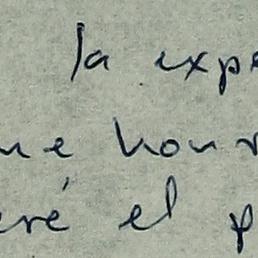 la expe
me hon
eré el p